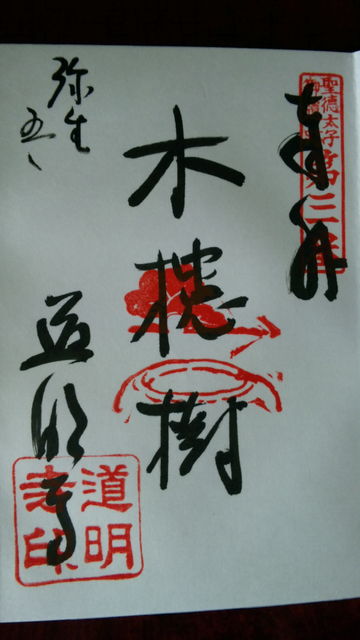 奉拝
聖徳太子
木槵樹
弥生
五
道明寺
道明
寺印